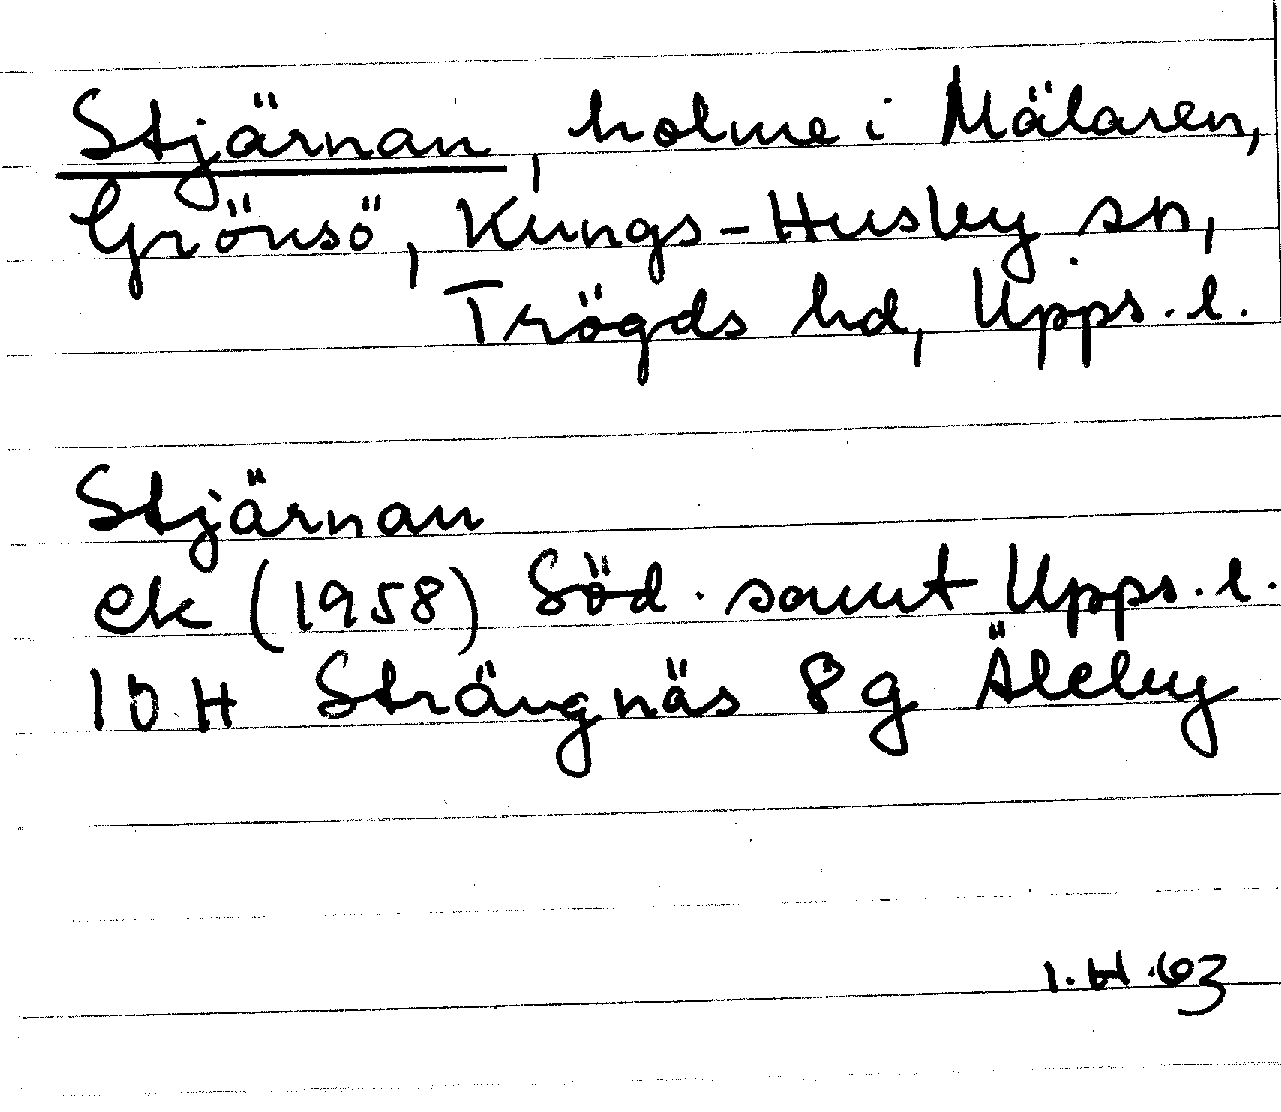 Stjärnan, holme i Mälaren,
Grönsö, Kungs-Husby sn,
Trögds hd, Upps. l.
Stjärnan
ek (1958) Söd. samt Upps. l.
10 H Strängnäs 8 g Äleby
I.H. 63